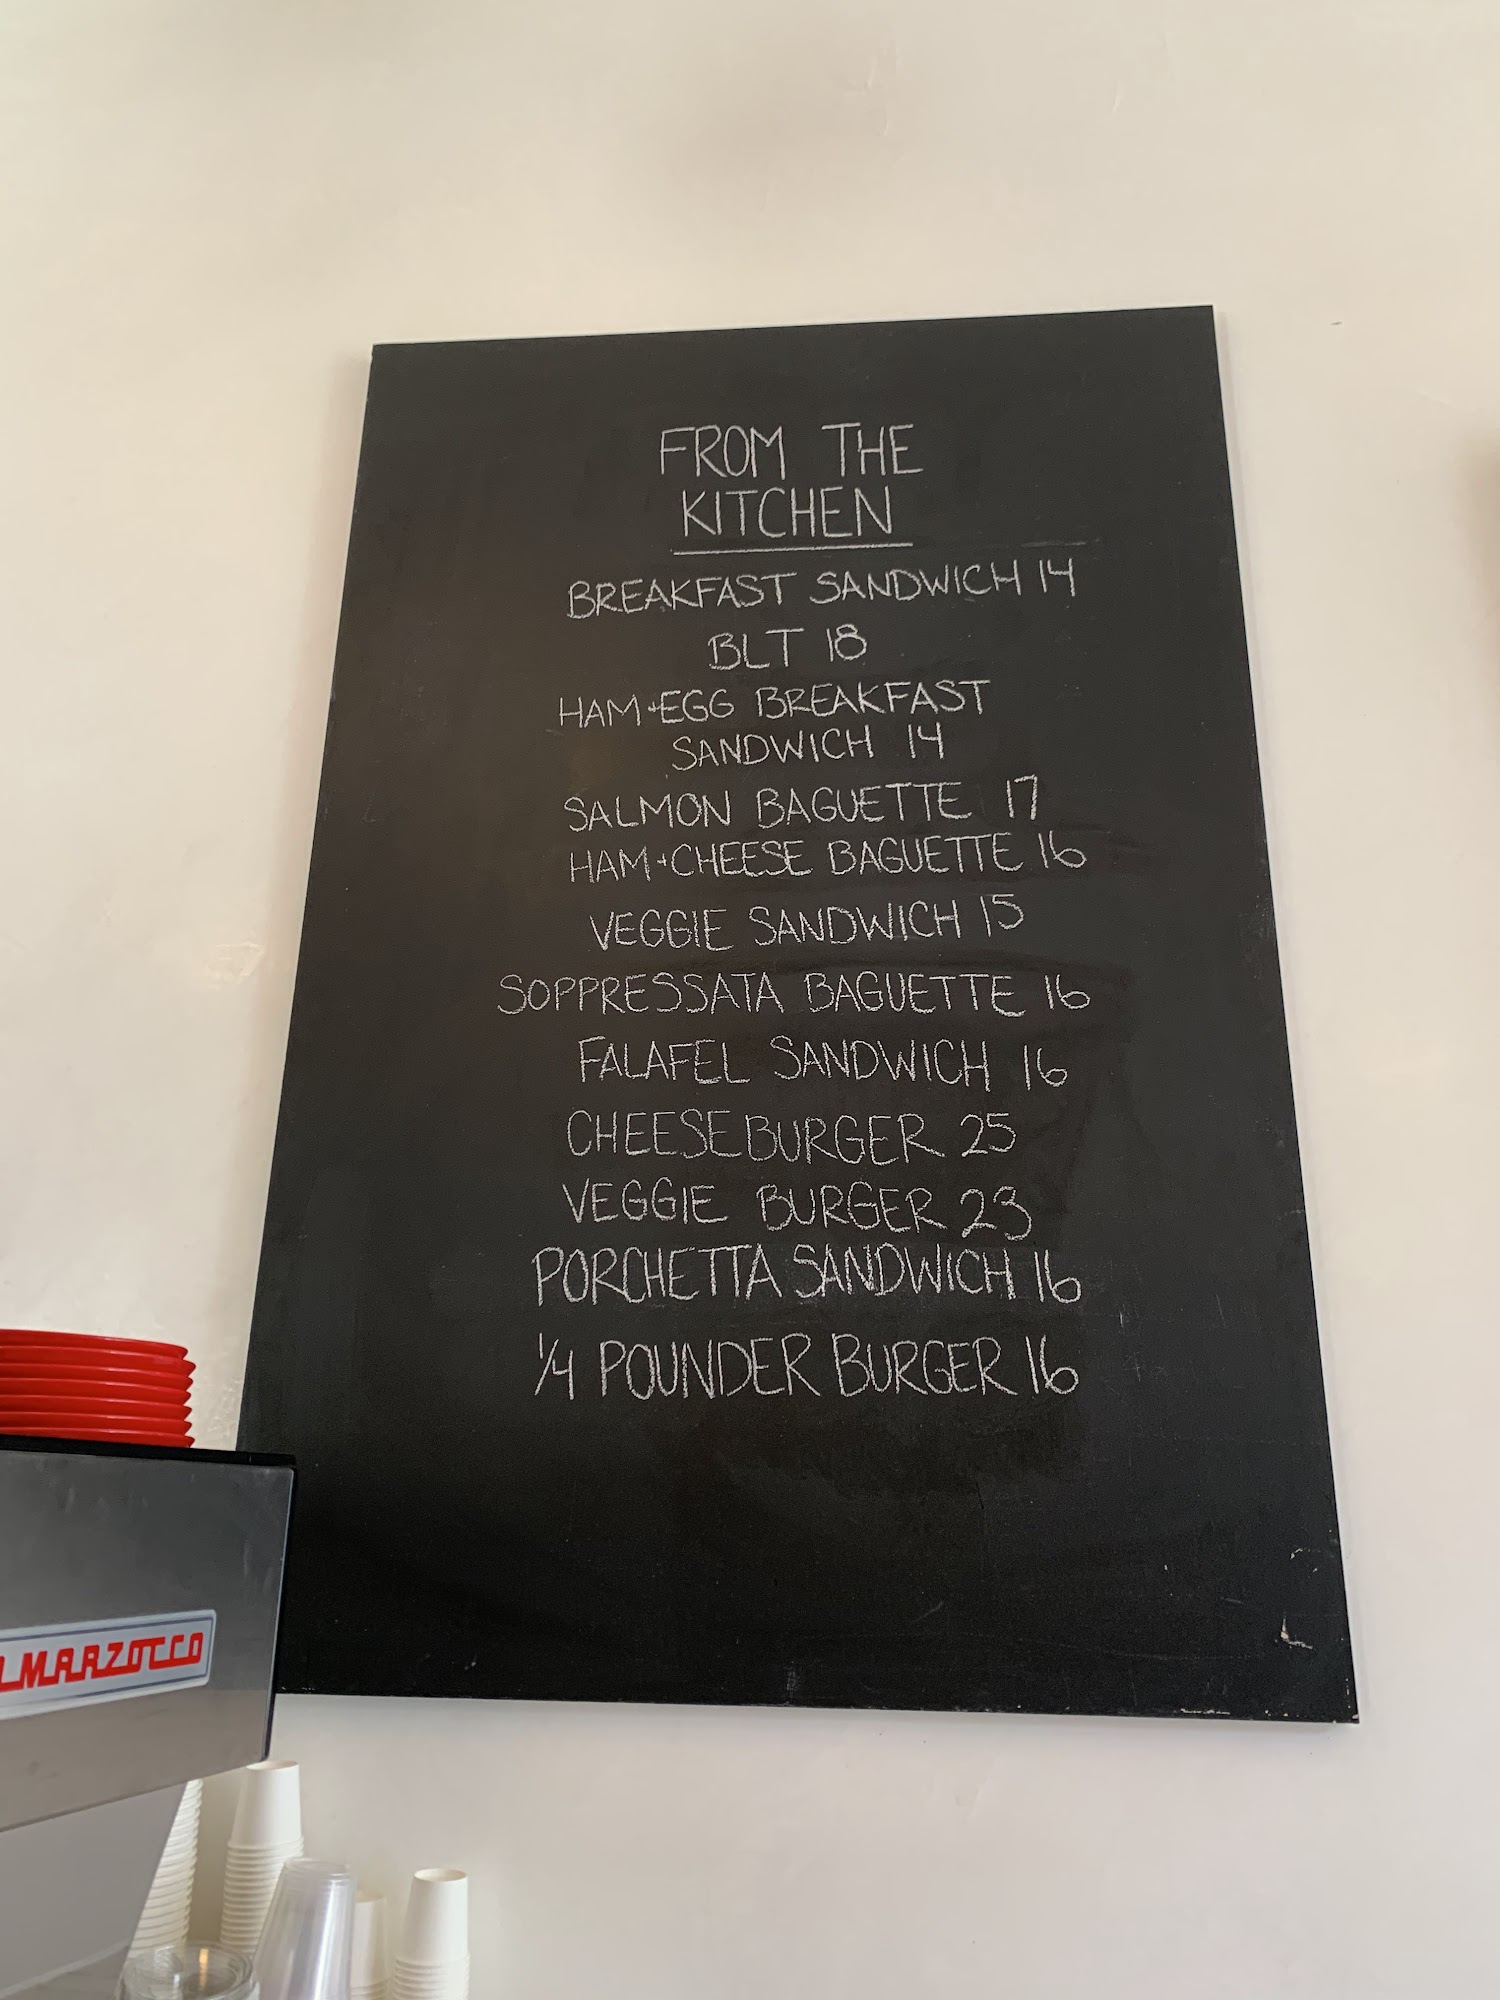 FROM THE
KITCHEN
BREAKFAST SANDWICH 14
BLT 18
HAM+EGG BREAKFAST
SANDWICH 14
SALMON BAGUETTE 17
HAM+CHEESE BAGUETTE 16
VEGGIE SANDWICH 15
SOPPRESSATA BAGUETTE 16
FALAFEL SANDWICH 16
CHEESEBURGER 25
VEGGIE BURGER 23
PORCHETTA SANDWICH 16
1/4 POUNDER BURGER 16
MARZOCCO